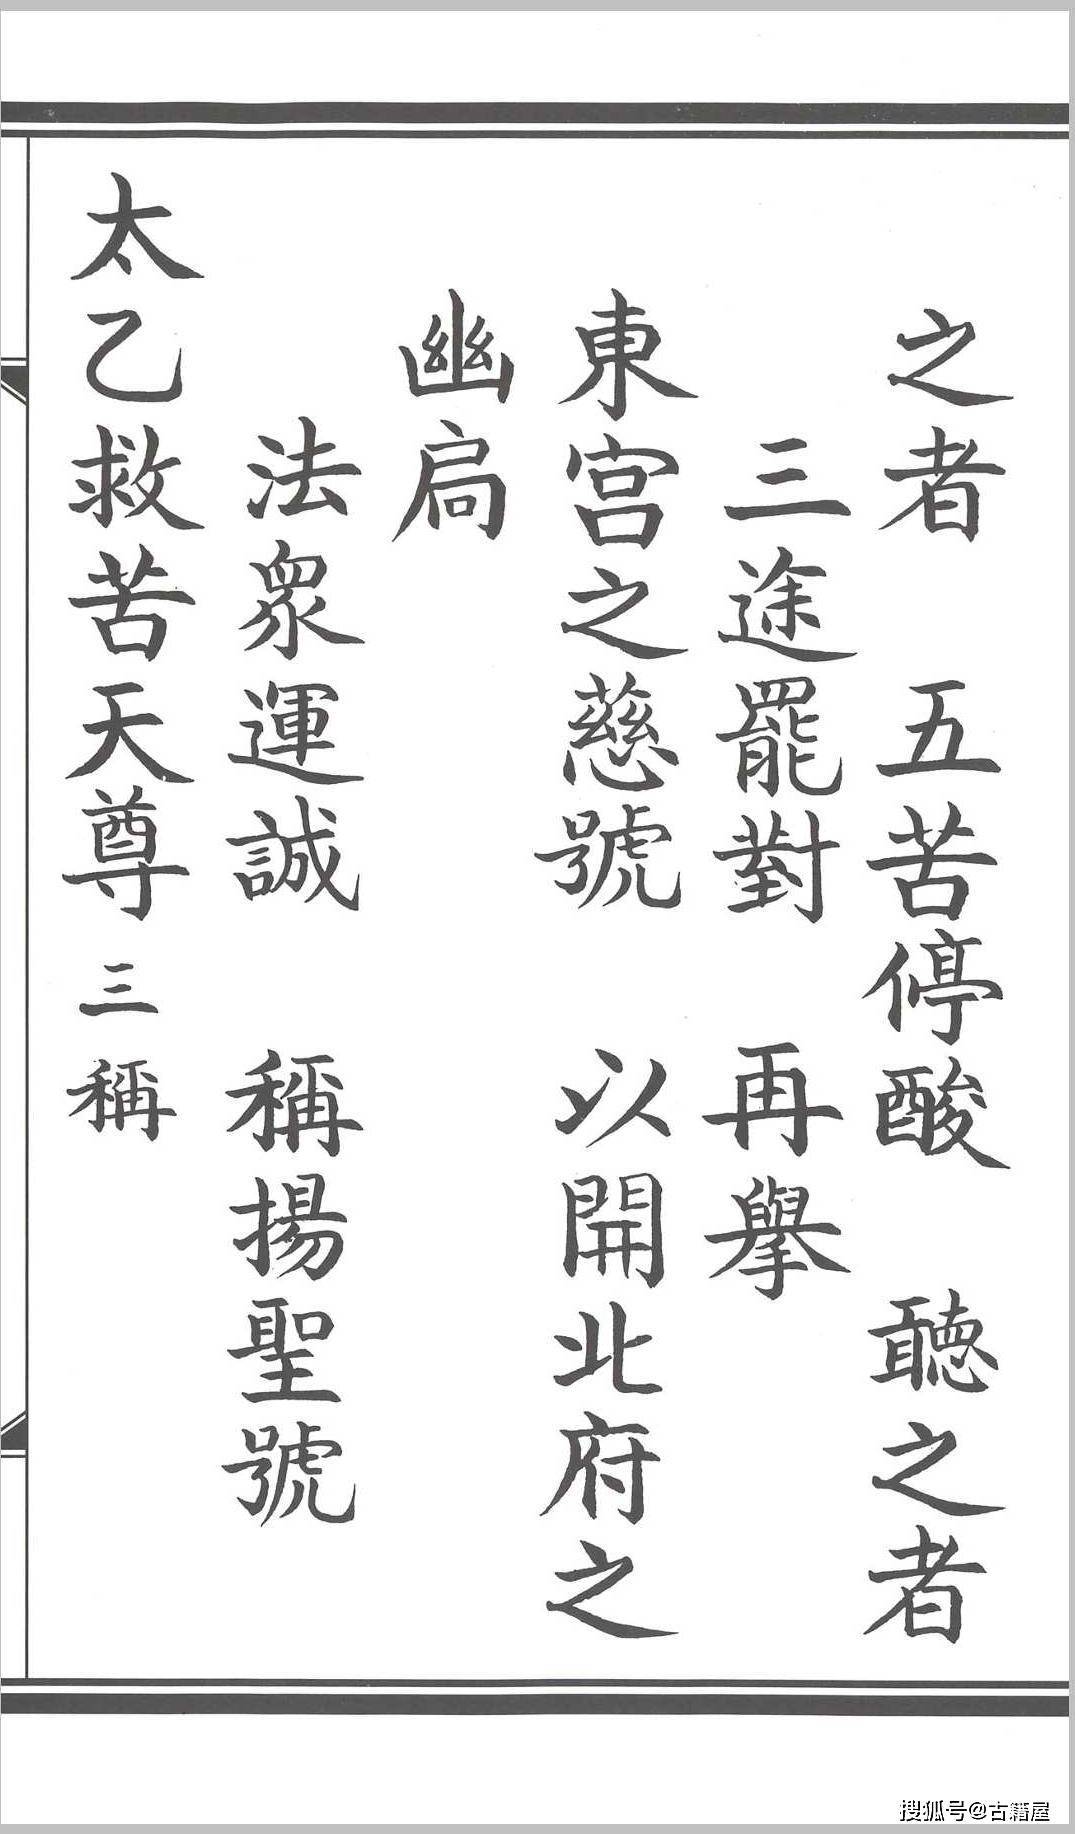 之者　五苦停酸　聽之者
三途罷對　再舉
東宮之慈號　以開北府之
幽扃
法眾運誠　稱揚聖號
太乙救苦天尊 三稱
搜狐号@古籍屋